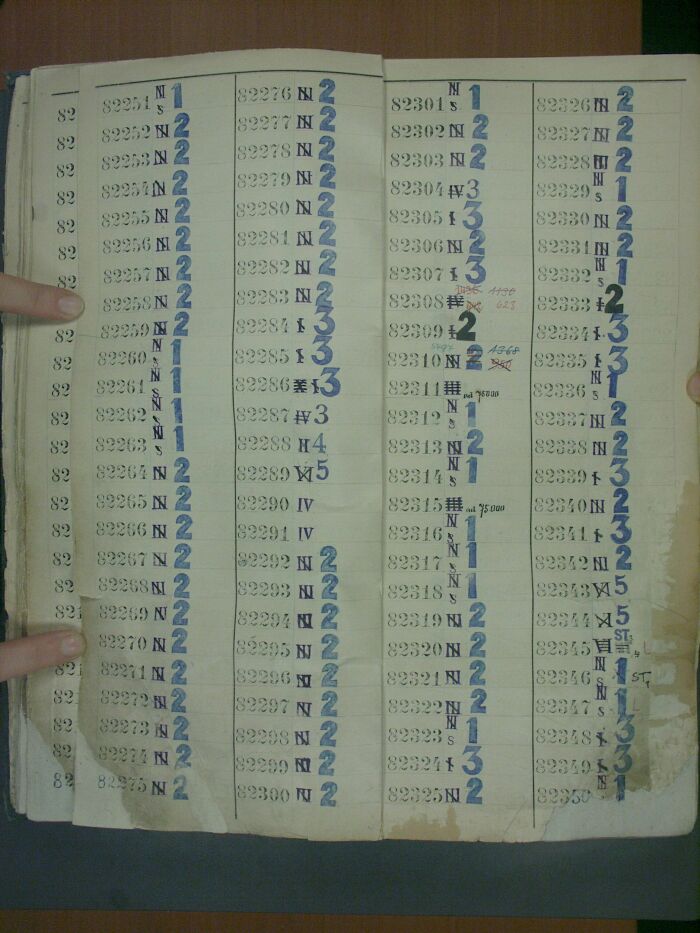 82251 N S 1
82252 N 2
82253 N 2
82254 N 2
82255 N 2
82256 N 2
82257 N 2
82258 N 2
82259 N 2
82260 N S 1
82261 N S 1
82262 N S 1
82263 N S 1
82264 N 2
82265 N 2
82266 N 2
82267 N 2
82268 N 2
82269 N 2
82270 N 2
82271 N 2
82272 N 2
82273 N 2
82274 N 2
82275 N 2
82276 N 2
82277 N 2
82278 N 2
82279 N 2
82280 N 2
82281 N 2
82282 N 2
82283 N 2
82284 I 3
82285 I 3
82286 I 3
82287 IV 3
82288 II 4
82289 VI 5
82290 IV
82291 IV
82292 N 2
82293 N 2
82294 N 2
82295 N 2
82296 N 2
82297 N 2
82298 N 2
82299 N 2
82300 N 2
82301 N S 1
82302 N 2
82303 N 2
82304 IV 3
82305 I 3
82306 N 2
82307 I 3
82308 623
82309 I 2
82310 N 2 1368
82311 od 75000
82312 N S 1
82313 N 2
82314 N S 1
82315 od 75000
82316 N S 1
82317 N S 1
82318 N S 1
82319 N 2
82320 N 2
82321 N 2
82322 N 2
82323 N S 1
82324 I 3
82325 N 2
82326 N 2
82327 N 2
82328 N 2
82329 N S 1
82330 N 2
82331 N 2
82332 N S 1
82333 I 2
82334 I 3
82335 I 3
82336 N S 1
82337 N 2
82338 N 2
82339 I 3
82340 N 2
82341 I 3
82342 N 2
82343 VI 5
82344 V 5
82345 ST.
82346 N S 1 ST.
82347 N S 1
82348 I 3
82349 I 3
82350 N 1